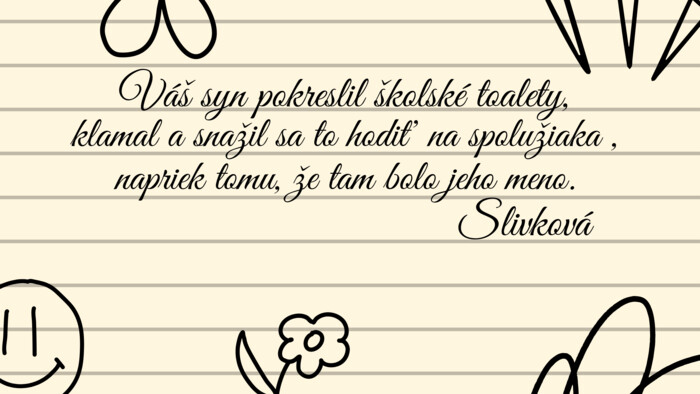 Váš syn pokreslil školské toalety,
klamal a snažil sa to hodiť na spolužiaka ,
napriek tomu, že tam bolo jeho meno.
Slivková